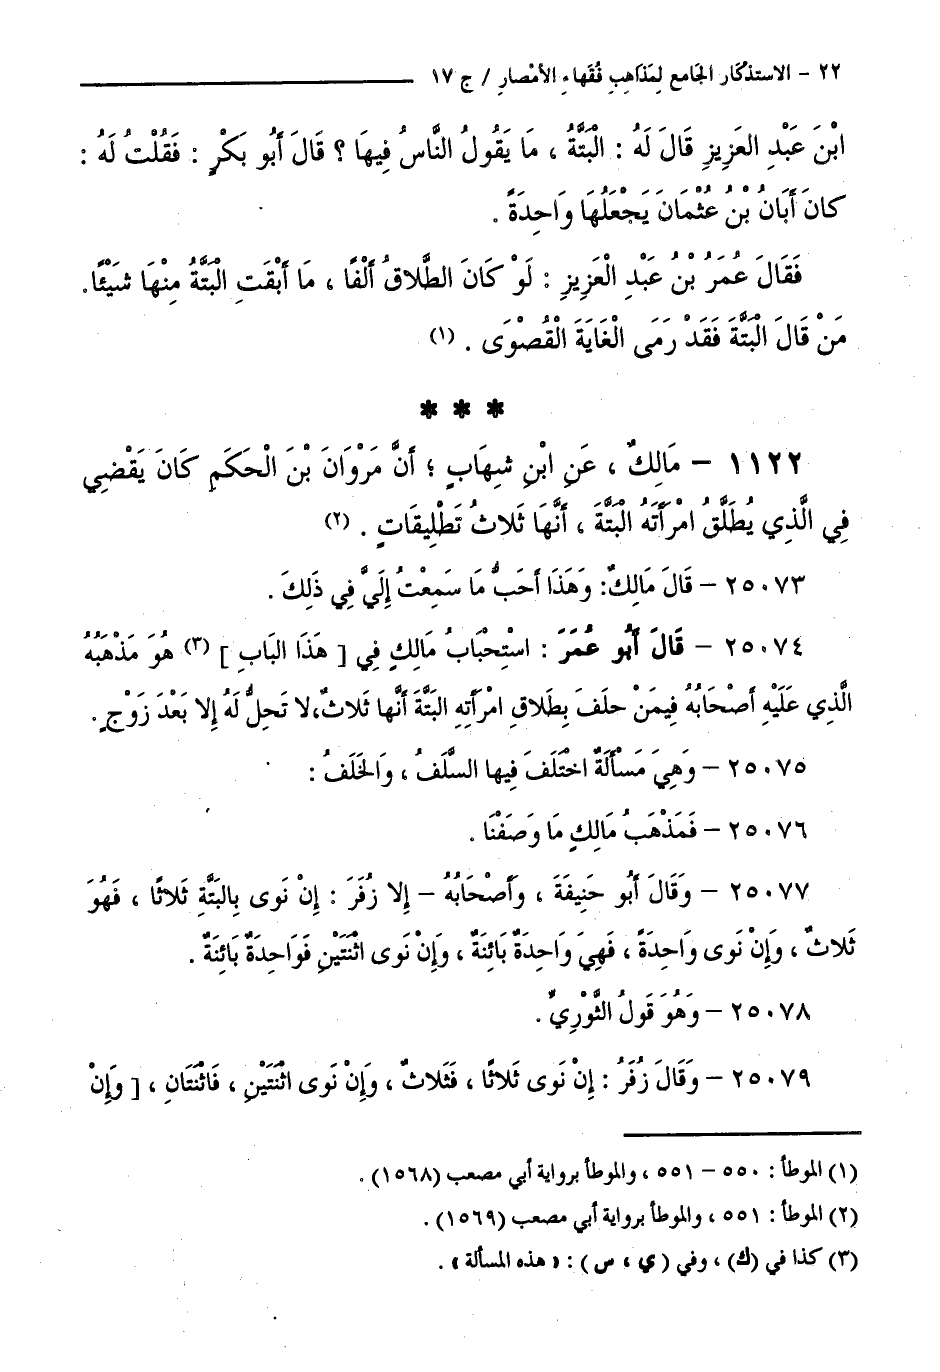 ٢٢ - الاستذكار الجامع لمَذاهبِ فُقَهاء الأمْصارِ / ج ١٧
ابْنَ عَبْدِ العَزِيزِ قَالَ لَهُ : الْبَتَّةُ ، مَا يَقُولُ النَّاسُ فِيهَا ؟ قَالَ أَبُو بَكْرٍ : فَقُلْتُ لَهُ :
كَانَ أَبَانُ بْنُ عُثْمَانَ يَجْعَلُهَا وَاحِدَةً .
فَقَالَ عُمَرُ بْنُ عَبْدِ الْعَزِيزِ : لَوْ كَانَ الطَّلَاقُ أَلْفًا ، مَا أَبْقَتِ الْبَتَّةُ مِنْهَا شَيْئًا.
مَنْ قَالَ الْبَتَّةَ فَقَدْ رَمَى الْغَايَةَ الْقُصْوَى . (١)
* * *
١١٢٢ - مَالِكٌ ، عَنِ ابْنِ شِهَابٍ ؛ أَنَّ مَرْوَانَ بْنَ الْحَكَمِ كَانَ يَقْضِي
فِي الَّذِي يُطَلِّقُ امْرَأَتَهُ الْبَتَّةَ ، أَنَّهَا ثَلاثُ تَطْلِيقَاتٍ . (٢)
٢٥٠٧٣ - قَالَ مَالِكٌ: وَهَذَا أَحَبُّ مَا سَمِعْتُ إِلَيَّ فِي ذَلِكَ .
٢٥٠٧٤ - قَالَ أَبُو عُمَرَ : اسْتِحْبَابُ مَالِكٍ فِي [ هَذَا البَابِ ] (٣) هُوَ مَذْهَبُهُ
الَّذِي عَلَيْهِ أَصْحَابُهُ فِيمَنْ حَلَفَ بِطَلاقِ امْرَأَتِهِ البَتَّةَ أَنَّها ثَلاثٌ، لا تَحِلُّ لَهُ إِلا بَعْدَ زَوْجٍ .
٢٥٠٧٥ - وَهِيَ مَسْأَلَةٌ اخْتَلَفَ فِيها السَّلَفُ ، وَالخَلَفُ :
٢٥٠٧٦ - فَمَذْهَبُ مَالِكٍ مَا وَصَفْنَا .
٢٥٠٧٧ - وَقَالَ أَبُو حَنِيفَةَ ، وَأَصْحَابُهُ - إِلا زُفَرَ : إِنْ نَوى بِالبَتَّةِ ثَلاثًا ، فَهُوَ
ثَلاثٌ ، وَإِنْ نَوى وَاحِدَةً ، فَهِيَ وَاحِدَةٌ بَائِنَةٌ ، وَإِنْ نَوى اثْنَتَيْنِ فَوَاحِدَةٌ بَائِنَةٌ .
٢٥٠٧٨ - وَهُوَ قَوْلُ الثَّوْرِيِّ .
٢٥٠٧٩ - وَقَالَ زُفَرُ : إِنْ نَوى ثَلاثًا ، فَثَلاثٌ ، وَإِنْ نَوى اثْنَتَيْنِ ، فَاثْنَتَانِ ، [ وَإِنْ
(١) الموطأ : ٥٥٠ - ٥٥١ ، والموطأ برواية أبي مصعب (١٥٦٨) .
(٢) الموطأ : ٥٥١ ، والموطأ برواية أبي مصعب (١٥٦٩) .
(٣) كذا في (ك) ، وفي ( ي ، س ) : « هذه المسألة » .